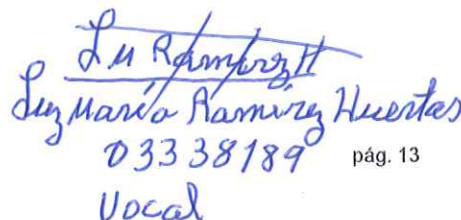 Lu Ramírez H
Luz María Ramírez Huertas
03338189 pág. 13
Vocal